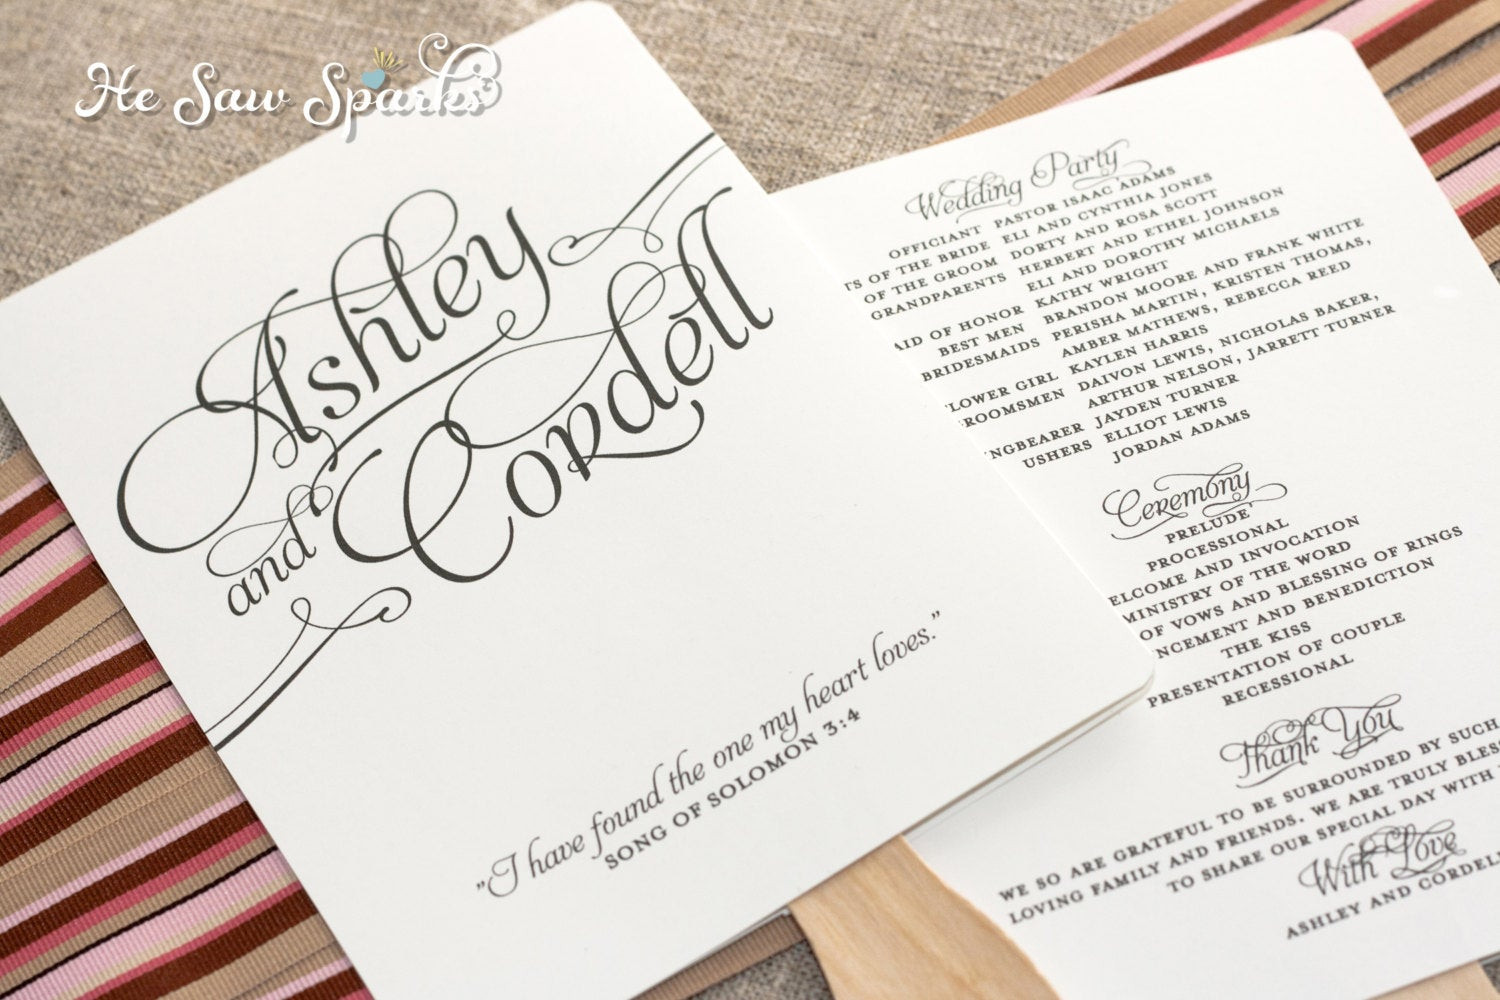 He Saw Sparks
Ashley
and Cordell
"I have found the one my heart loves."
SONG OF SOLOMON 3:4
Wedding Party
OFFICIANT PASTOR ISAAC ADAMS
TS OF THE BRIDE ELI AND CYNTHIA JONES
OF THE GROOM DORTY AND ROSA SCOTT
GRANDPARENTS HERBERT AND ETHEL JOHNSON
ELI AND DOROTHY MICHAELS
AID OF HONOR KATHY WRIGHT
BEST MEN BRANDON MOORE AND FRANK WHITE
BRIDESMAIDS PERISHA MARTIN, KRISTEN THOMAS,
AMBER MATHEWS, REBECCA REED
LOWER GIRL KAYLEN HARRIS
ROOMSMEN DAIVON LEWIS, NICHOLAS BAKER,
ARTHUR NELSON, JARRETT TURNER
NGBEARER JAYDEN TURNER
USHERS ELLIOT LEWIS
JORDAN ADAMS
Ceremony
PRELUDE
PROCESSIONAL
ELCOME AND INVOCATION
MINISTRY OF THE WORD
OF VOWS AND BLESSING OF RINGS
NCEMENT AND BENEDICTION
THE KISS
PRESENTATION OF COUPLE
RECESSIONAL
Thank You
WE SO ARE GRATEFUL TO BE SURROUNDED BY SUCH
LOVING FAMILY AND FRIENDS. WE ARE TRULY BLES
TO SHARE OUR SPECIAL DAY WITH
With Love
ASHLEY AND CORDELL